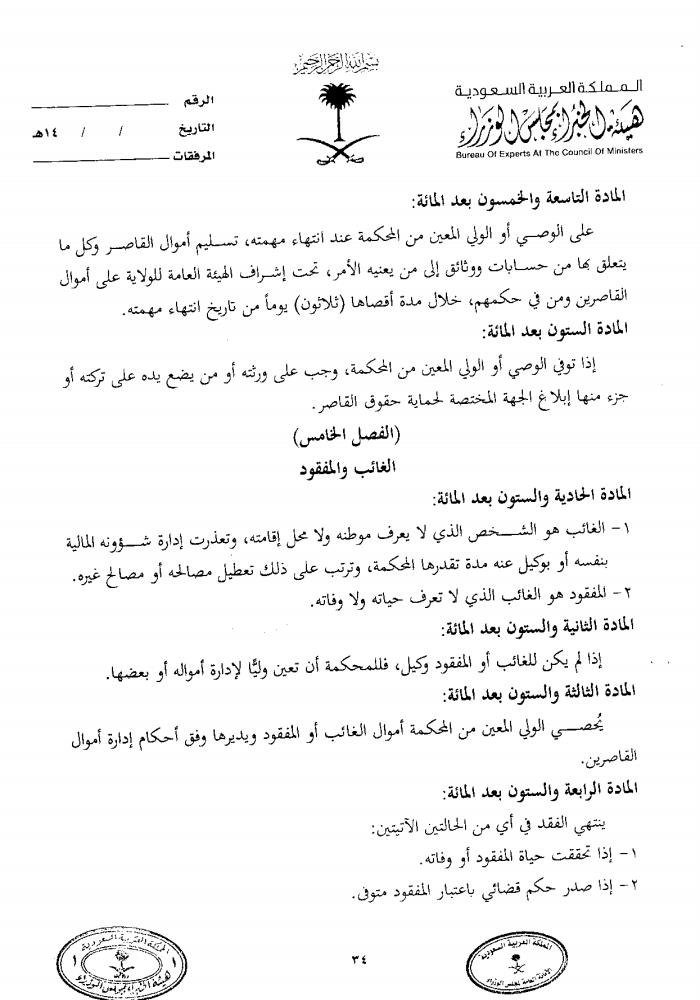 بسم الله الرحمن الرحيم
المملكة العربية السعودية
هيئة الخبراء بمجلس الوزراء
Bureau Of Experts At The Council Of Ministers
الرقم
التاريخ / / ١٤هـ
المرفقات
المادة التاسعة والخمسون بعد المائة:
على الوصي أو الولي المعين من المحكمة عند انتهاء مهمته، تسليم أموال القاصر وكل ما
يتعلق بها من حسابات ووثائق إلى من يعنيه الأمر، تحت إشراف الهيئة العامة للولاية على أموال
القاصرين ومن في حكمهم، خلال مدة أقصاها (ثلاثون) يوماً من تاريخ انتهاء مهمته.
المادة الستون بعد المائة:
إذا توفي الوصي أو الولي المعين من المحكمة، وجب على ورثته أو من يضع يده على تركته أو
جزء منها إبلاغ الجهة المختصة لحماية حقوق القاصر.
(الفصل الخامس)
الغائب والمفقود
المادة الحادية والستون بعد المائة:
١- الغائب هو الشخص الذي لا يعرف موطنه ولا محل إقامته، وتعذرت إدارة شؤونه المالية
بنفسه أو بوكيل عنه مدة تقدرها المحكمة، وترتب على ذلك تعطيل مصالحه أو مصالح غيره.
٢- المفقود هو الغائب الذي لا تعرف حياته ولا وفاته.
المادة الثانية والستون بعد المائة:
إذا لم يكن للغائب أو المفقود وكيل، فللمحكمة أن تعين وليًّا لإدارة أمواله أو بعضها.
المادة الثالثة والستون بعد المائة:
يُحصي الولي المعين من المحكمة أموال الغائب أو المفقود ويديرها وفق أحكام إدارة أموال
القاصرين.
المادة الرابعة والستون بعد المائة:
ينتهي الفقد في أي من الحالتين الآتيتين:
١- إذا تحققت حياة المفقود أو وفاته.
٢- إذا صدر حكم قضائي باعتبار المفقود متوفى.
المملكة العربية السعودية
الأمانة العامة لمجلس الوزراء
٣٤
المملكة العربية السعودية
١ ١
هيئة الخبراء بمجلس الوزراء